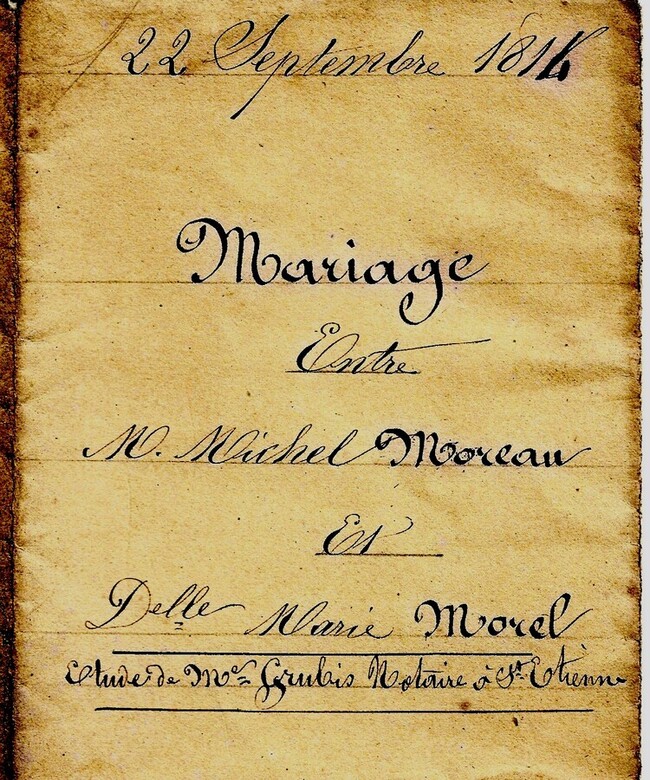 22 Septembre 1814
Mariage
Entre
M. Michel Moreau
Et
Delle Marie Morel
Etude de Me Grubis Notaire à St Etienne